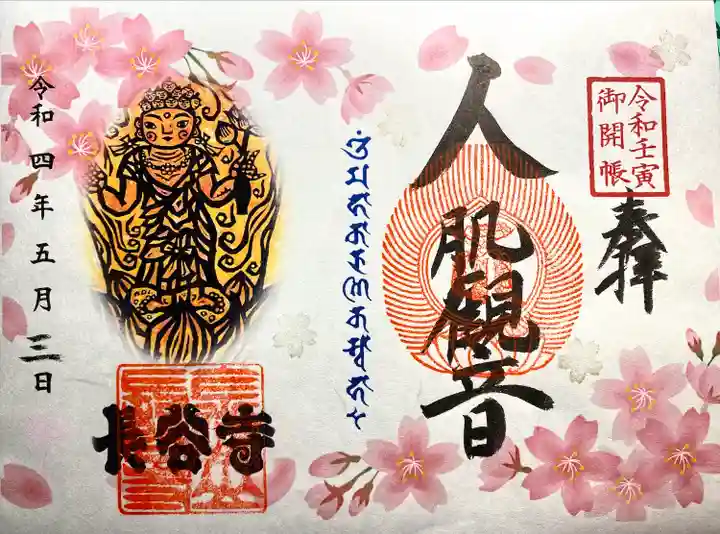 令和壬寅
御開帳
奉拝
人肌観音
令和四年五月三日
長谷寺